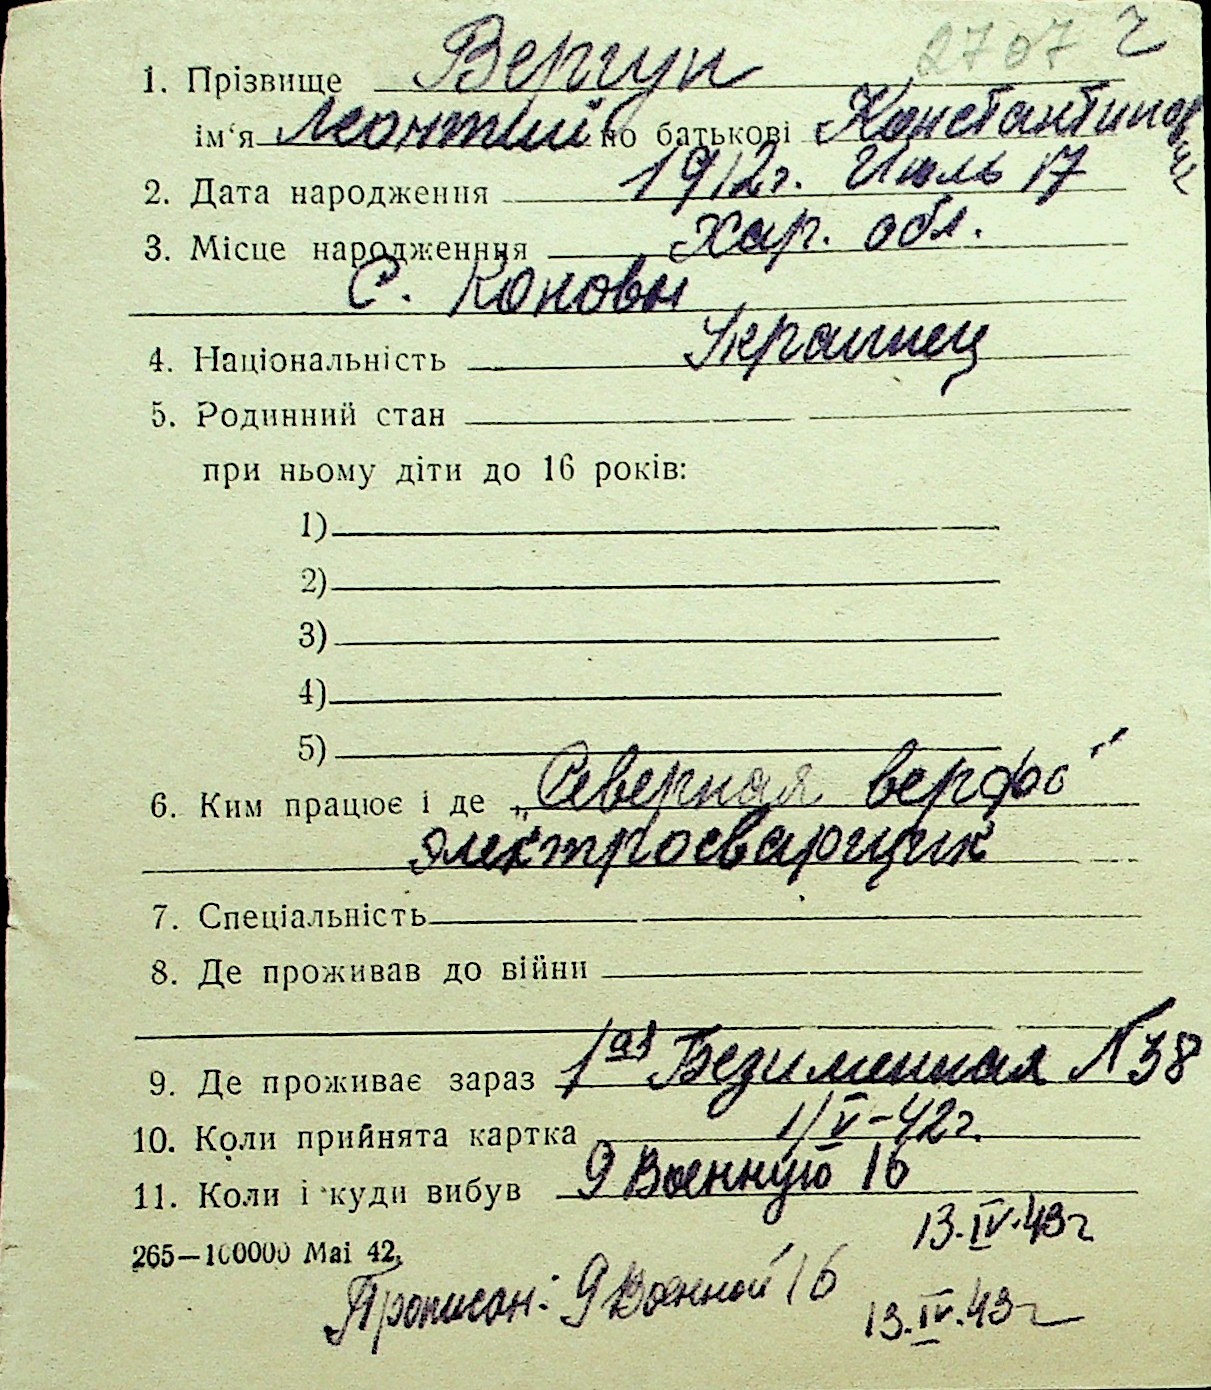 2707 г
1. Прізвище Вергун
ім‘я Леонтий по батькові Константинович
2. Дата народження 1912г. Июль 17
3. Місце народженння Хар. обл.
С. Коновы
4. Національність Украинец
5. Родинний стан
при ньому діти до 16 років:
1)
2)
3)
4)
5)
6. Ким працює і де „Северная верфь"
электросварщик
7. Спеціальність
8. Де проживав до війни
9. Де проживає зараз 1ая Безименная N 38
10. Коли прийнята картка 1/V-42г.
11. Коли і куди вибув 9 Военную 16
13.IV.43г
265—100000 Mai 42.
Прописан: 9 Военной 16
13.IV.43г